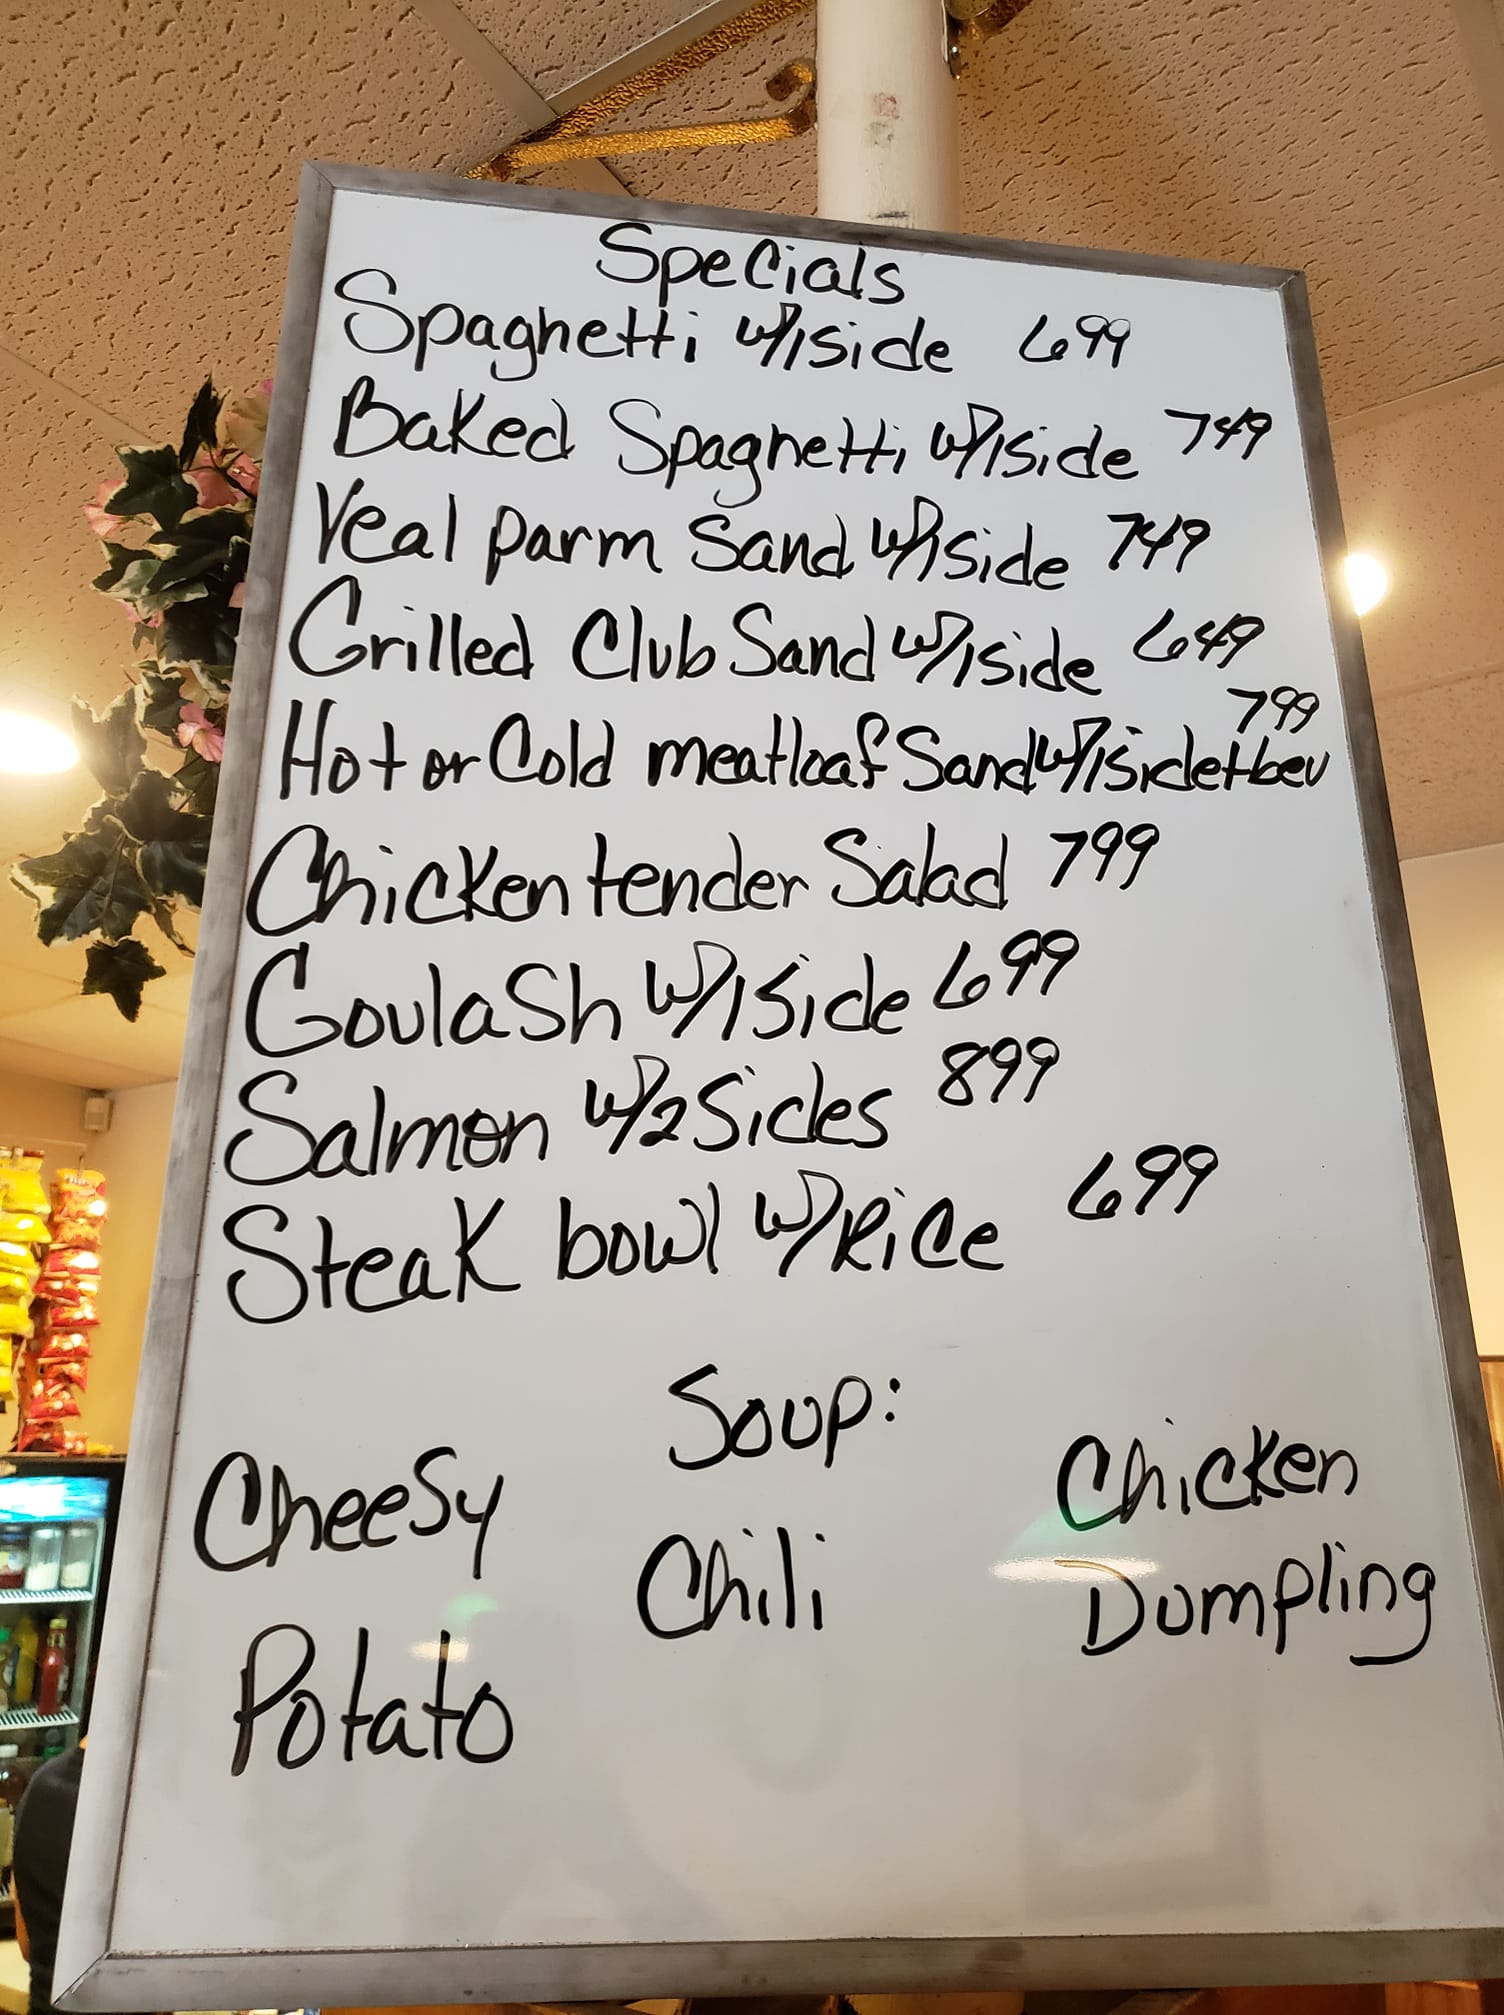 Specials
Spaghetti w/1side 699
Baked Spaghetti w/1side 749
Veal parm Sand w/1side 749
Grilled Club Sand w/1side 649
799
Hot or Cold meatloaf Sand w/1side+bev
Chicken tender Salad 799
Goulash w/1side 699
Salmon w/2Sides 899
Steak bowl w/Rice 699
Soup:
Cheesy
Potato
Chili
Chicken
Dumpling